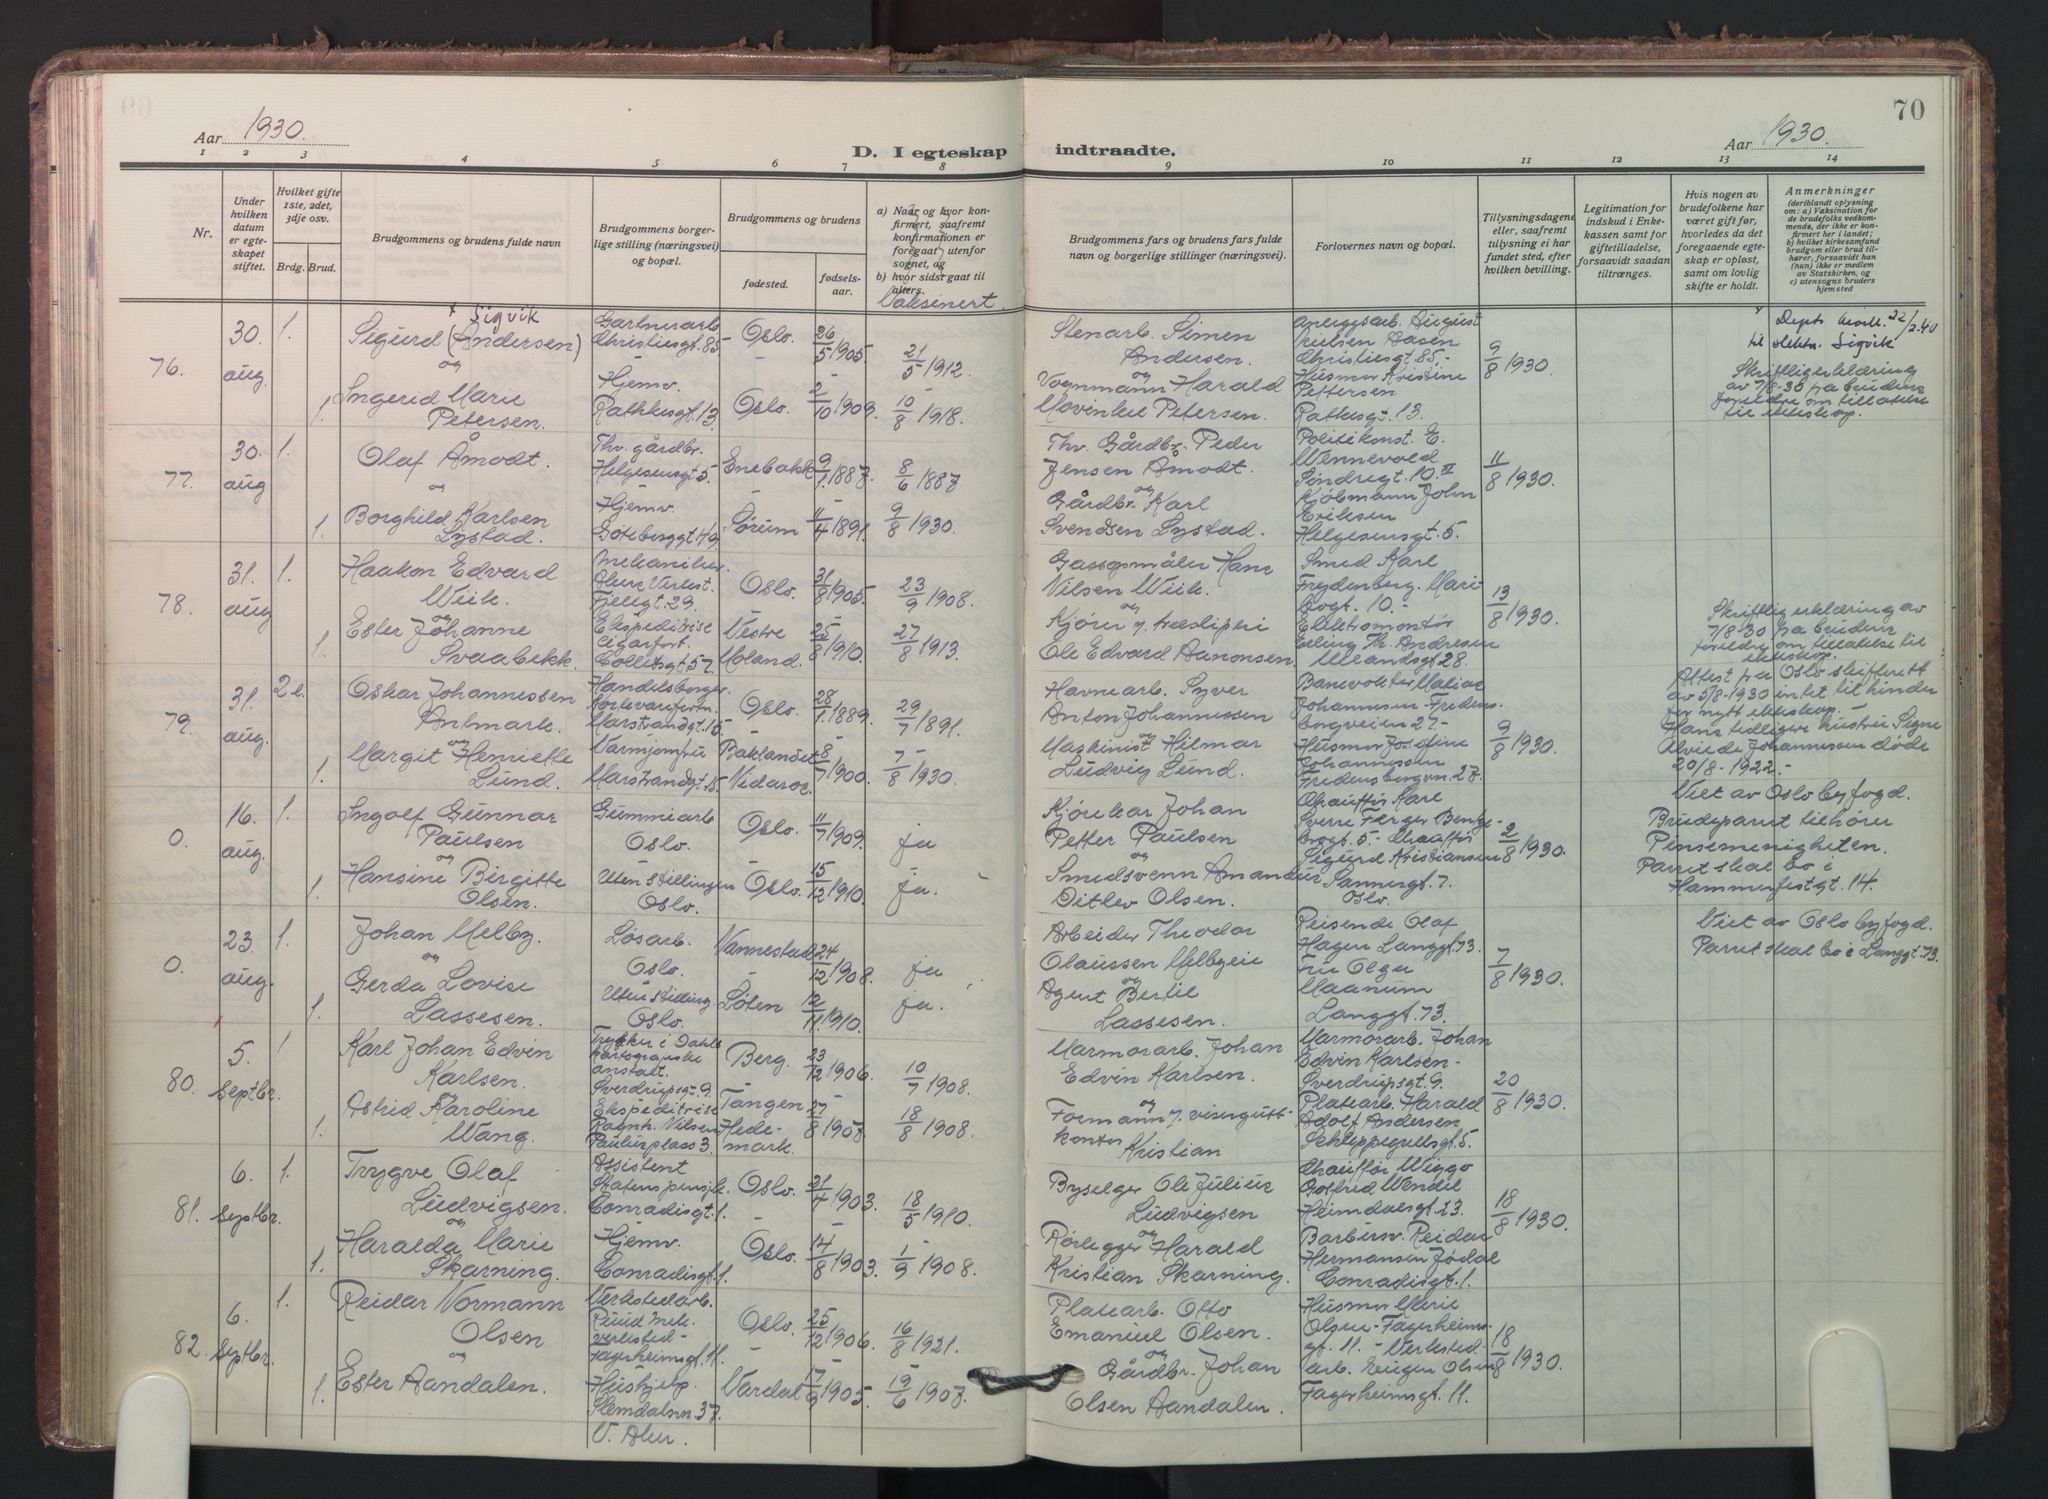 Aar 1930.
D. I egteskap indtraadte.
Aar 1930.
70
1 2 3 4 5 6 7 8 9 10 11 12 13 14
Nr.
Under hvilken datum er egteskapet stiftet.
Hvilket gifte 1ste, 2det, 3dje osv.
Brdg. Brud.
Brudgommens og brudens fulde navn
Brudgommens borgerlige stilling (næringsvei) og bopæl.
Brudgommens og brudens
fødested.
fødselsaar.
a) Naar og hvor konfirmert, saafremt konfirmationen er foregaat utenfor sognet, og
b) hvor sidst gaat til alters.
Vaksinert
Brudgommens fars og brudens fars fulde navn og borgerlige stillinger (næringsvei).
Forlovernes navn og bopæl.
Tillysningsdagene eller, saafremt tillysning ei har fundet sted, efter hvilken bevilling.
Legitimation for indskud i Enkekassen samt for giftetilladelse, forsaavidt saadan tiltrænges.
Hvis nogen av brudefolkene har været gift før, hvorledes da det foregaaende egteskap er opløst, samt om lovlig skifte er holdt.
Anmerkninger (deriblandt oplysning om: a) Vaksination for de brudefolks vedkommende, der ikke er konfirmert her i landet; b) hvilket kirkesamfund brudgom eller brud tilhører, forsaavidt han (hun) ikke er medlem av Statskirken, og c) utensogns bruders hjemsted
76. 30. aug. 1.
x Sigvik
Sigurd (Andersen)
og
1. Ingerid Marie
Petersen.
Gartnerarb.
Christiesgt. 85
Hjemv.
Rathkesgt. 13.
Oslo. 26/5 1905. 21/5 1912.
Oslo. 2/10 1909. 10/8 1918.
Stenarb. Simen
Andersen.
og
Vognmann Harald
Movinkel Petersen.
Anleggsarb. August
Nielsen Aasen
Christiesgt. 85.-
Husmor Kristine
Pettersen
Rathesgt. 13.
9/8 1930.
x Depts bevill. 22/2.40
til slektn. Sigvik
Skriftlig erklæring
av 7/8-30 fra brudens
foreldre om tillatelse
til ekteskap.
77. 30. aug 1.
Olaf Åmodt.
og
1. Borghild Karlsen
Lystad.
Thv. gårdbr.
Helgesensgt. 5.
Hjemv.
Göteborggt. 49.
Enebakk 9/7 1887. 8/6 1887
Sørum 11/4 1891. 9/8 1930.
Thv. Gårdbr. Peder
Jensen Åmodt.
og
Gårdbr. Karl
Svendsen Lystad.
Politikonst. E.
Wennevold
Søndregt. 10. IV
Kjøbmann John
Eriksen
Helgesensgt. 5.
11/8 1930.
78. 31. aug 1.
Haakon Edvard
Wiik.
og
1. Ester Johanne
Svaabekk.
Mekaniker
Akers Verkst.
Fjellgt. 29.
Ekspeditrise
Cigarforr.
Colletsgt. 57
Oslo. 31/8 1905. 23/9 1908.
Vestre
Moland. 25/8 1910. 27/8 1913.
Gassmåler Hans
Nilsen Wiik.
og
Kjører v. træsliperi
Ole Edvard Aanonsen
Smed Karl
Frydenberg. Mari-
bogt. 10.-
Elektromontør
Erling Th. Andresen
Ullandsgt 28.
13/8 1930.
Skriftlig erklæring av
7/8-30 fra brudens
foreldre om tillatelse til
ekteskap.
79. 31. aug. 2.
Oskar Johannessen
Antmark.
og
1. Margit Henriette
Lund.
Handelsborger
Kortevareforr.
Marstrandgt. 15
Varmjomfru
Marstrandgt. 15.
Oslo. 28/1 1889. 29/7 1891.
Baklandet
Nidaros. 8/7 1900. 7/8 1930.
Havnearb. Syver
Anton Johannessen
og
Maskinist Hilmar
Ludvig Lund.
Banevokter Matias
Johannesen Fredens-
borgveien 27.-
Husmor Josefine
Johannessen
Fredensborgvn. 27.
9/8 1930.
Attest fra Oslo skifterett
av 5/8-1930 intet til hinder
for nytt ekteskap.-
Hans tidligere hustru Signe
Alvilde Johannessen døde
20/8-1922.-
0. 16. aug. 1.
Ingolf Gunnar
Paulsen
og
1. Hansine Birgitte
Olsen.
Gummiarb
Oslo.
Uten stillingen
Oslo.
Oslo. 11/7 1909. ja
Oslo. 15/12 1910. ja.
Kjørekar Johan
Petter Paulsen
og
Smedsvenn Amandus
Ditlev Olsen.
Chauffør Karl
Sverre Berger Benge-
bogt. 5.- Chauffør
Sigurd Kristiansen
Sannergt. 7.
Oslo.
2/8 1930.
Viet av Oslo byfogd.
Brudeparret tilhører
Pinsemenigheten.
Parret skal bo i
Hammerfestgt. 14.
0. 23. aug. 1.
Johan Melby.
og
1. Gerda Lovise
Lassesen.
Løsarb.
Oslo.
Uten stilling.
Oslo.
Vannestad 24/12 1908. ja
Løten 12/11 1910. ja.
Arbeider Theodor
Olaussen Melbyeie
og
Agent Bertil
Lassesen.
Reisende Olaf
Hagen Langgt. 73.
Fru Olga
Maanum
Langgt. 73.
7/8 1930.
Viet av Oslo byfogd.
Parret skal bo i Langgt. 73.
80. 5. septbr. 1
Karl Johan Edvin
Karlsen.
og
1. Astrid Karoline
Wang.
Trykker i Dahls
kartografiske
anstalt.
Sverdrupsgt. 9.
Ekspeditrise
Ragnh. Nilsen
Paulus plass 3.
Berg. 23/12 1906. 10/7 1908.
Tangen
Hede-
mark. 27/8 1907. 18/8 1908.
Marmorarb. Johan
Edvin Karlsen.
og
Formann v. visergutt-
kontor
Kristian
Marmorarb. Johan
Edvin Karlsen-
Sverdrupsgt. 9.
Platearb. Harald
Adolf Andersen
Schleppegrellsgt. 5.
20/8 1930.
81. 6. septbr. 1.
Trygve Olaf
Ludvigsen.
og
1. Haralda Marie
Skarning.
Assistent
Statens pensjk.
Conradisgt. 1.
Hjemv.
Conradisgt. 1.
Oslo. 21/4 1903. 18/5 1910.
Oslo. 14/8 1903. 1/9 1908.
Byselger Ole Julius
Ludvigsen
og
Rørlegger Harald
Kristian Skarning.
Chauffør Wiggo
Gotfred Wendel
Heimdalsgt. 23.
Barbersv. Reidar
Hermansen Jødal
Conradisgt. 1.
18/8 1930.
82. 6. septbr. 1.
Reidar Normann
Olsen
og
1. Ester Aandalen.
Verkstedarb.
Ruud Mek.
verksted-
Fagerheimsgt. 11.
Hushjelp.
Slemdalsvn. 37.
V. Aker.
Oslo. 25/12 1906. 16/8 1921.
Vardal 17/9 1905. 19/6 1907.
Platearb. Otto
Emanuel Olsen.
og
Gårdbr. Johan
Olsen Aandalen.
Husmor Marie
Olsen- Fagerheims-
gt. 11.- Verksted-
arb. Eugen Olsen
Fagerheimsgt. 11.
18/8 1930.